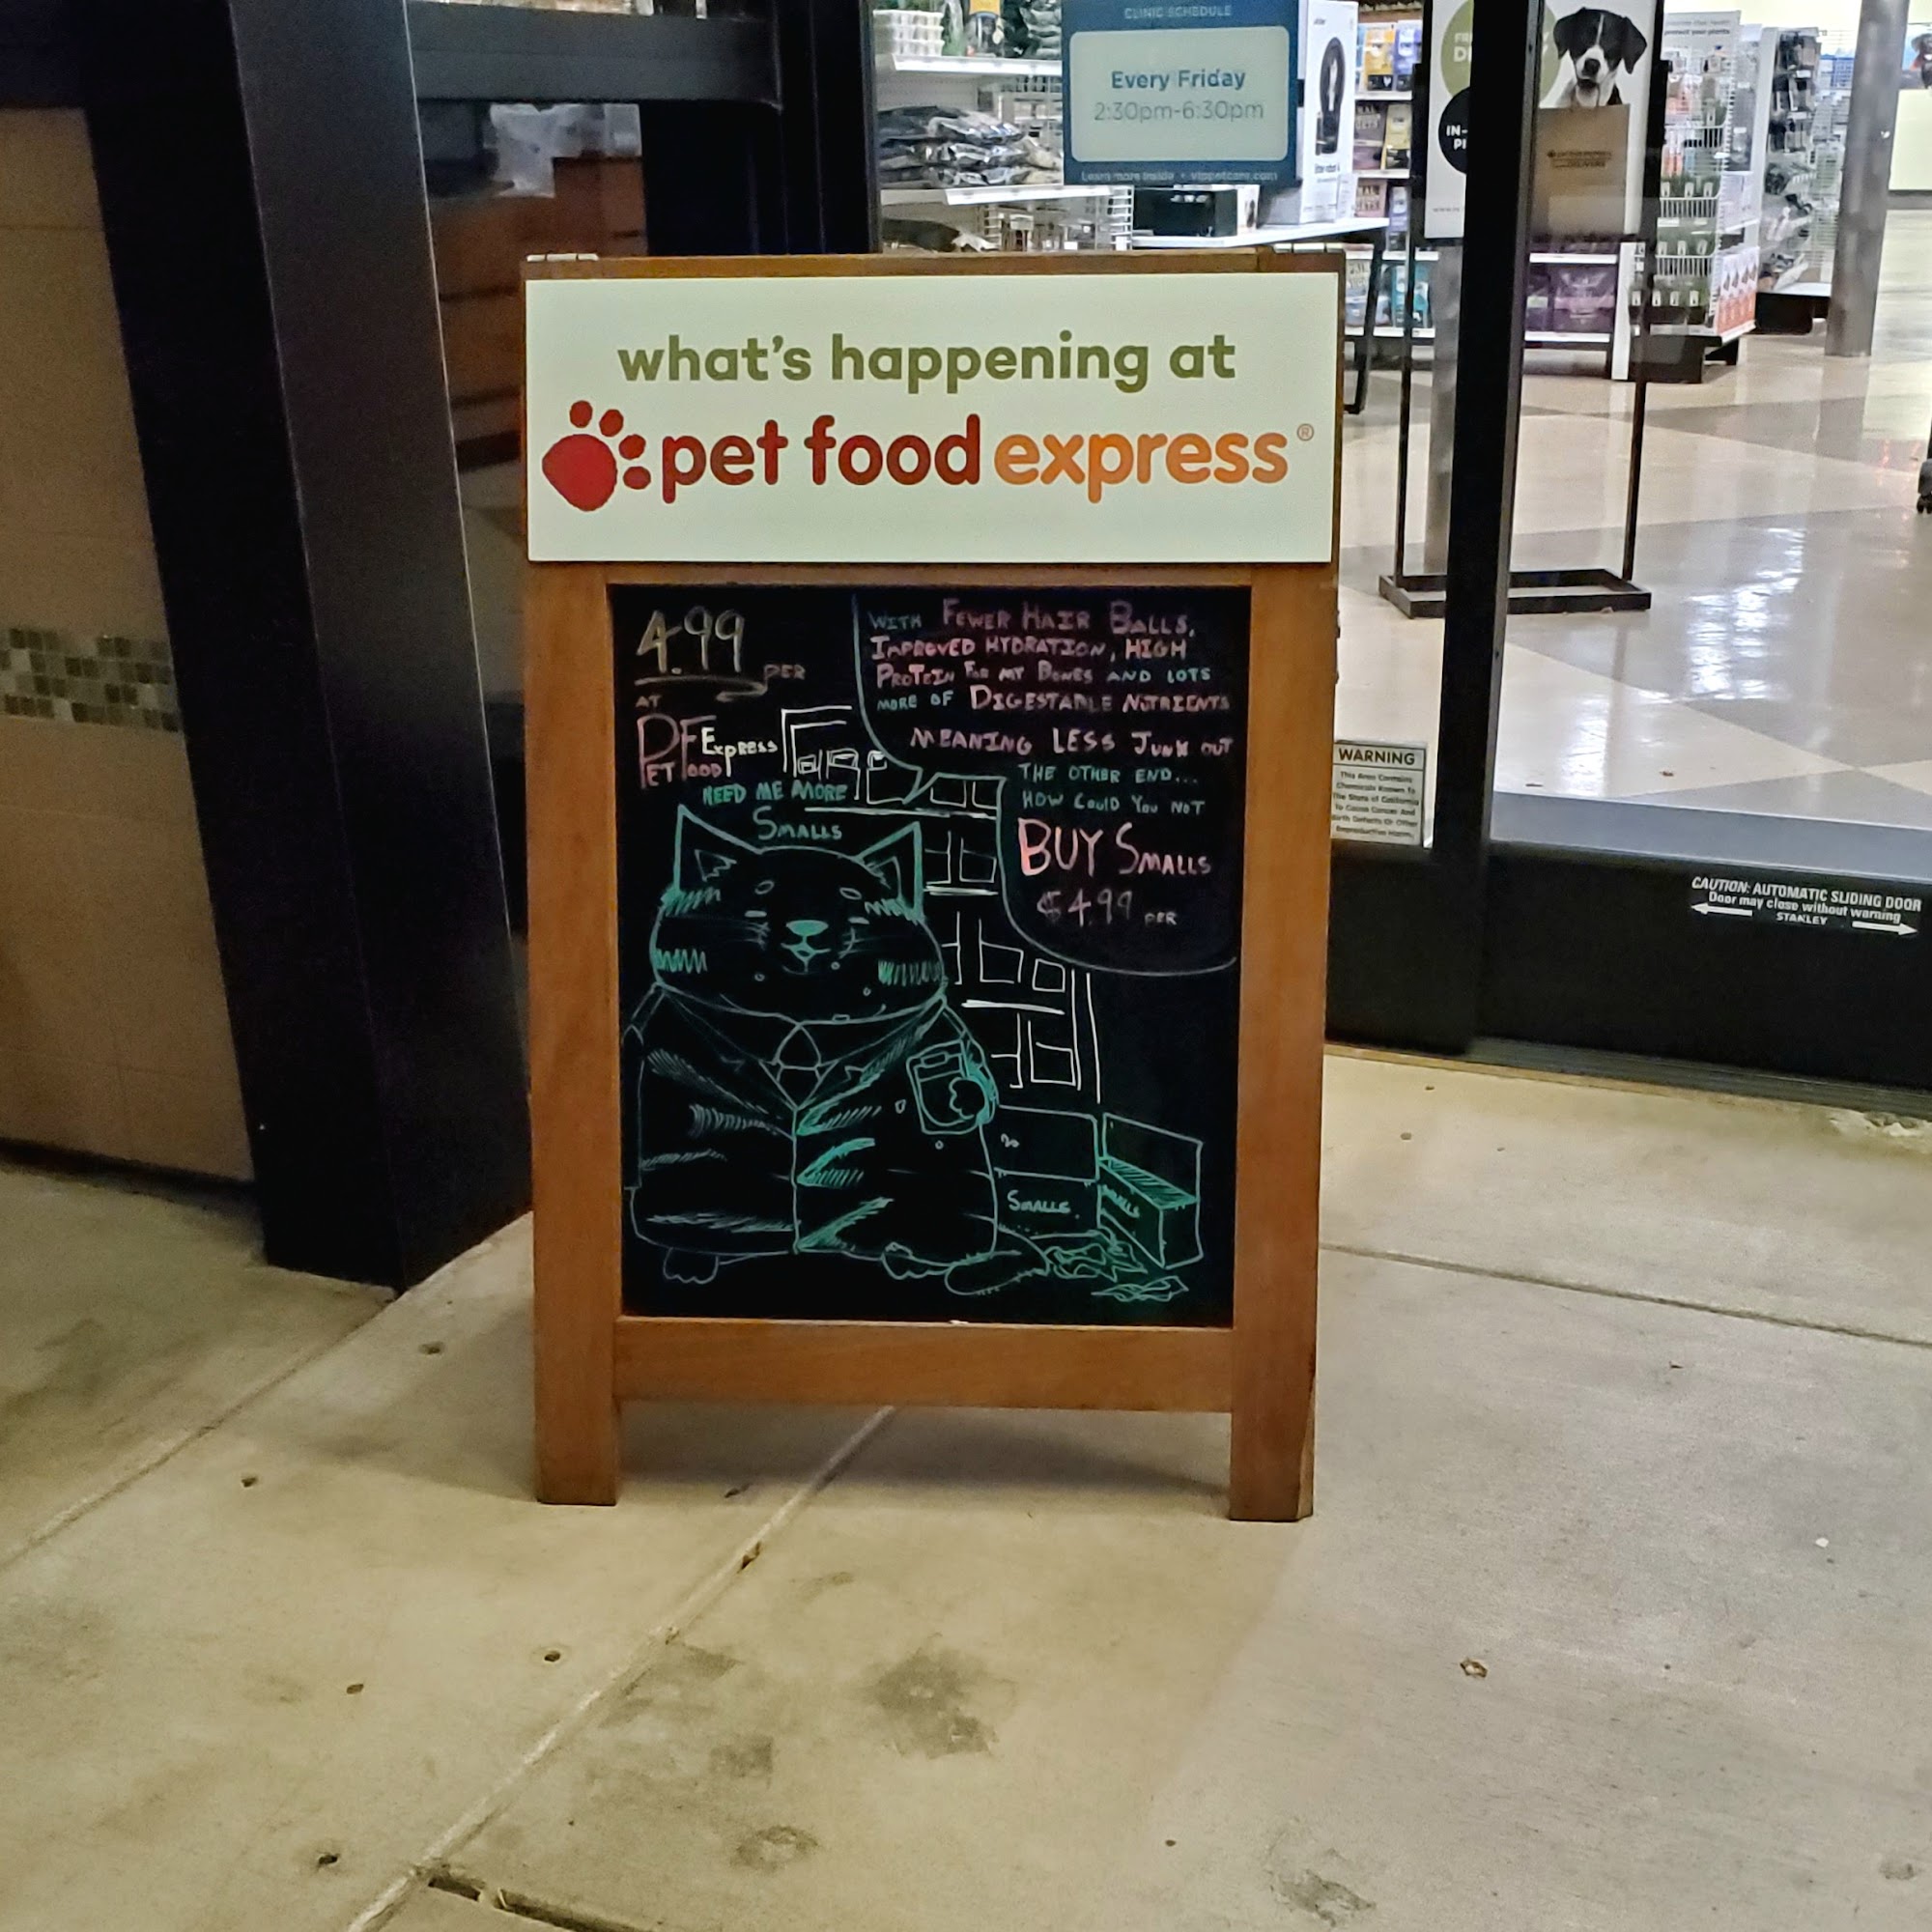 CLINIC SCHEDULE
Every Friday
2:30pm-6:30pm
Learn more inside • vippetcare.com
IN-
what's happening at
pet food express®
4.99
PER
AT
PET FOOD EXPRESS
NEED ME MORE
SMALLS
WITH FEWER HAIR BALLS,
IMPROVED HYDRATION, HIGH
PROTEIN FOR MY BONES AND LOTS
MORE OF DIGESTABLE NUTRIENTS
MEANING LESS JUNK OUT
THE OTHER END...
HOW COULD YOU NOT
BUY SMALLS
$4.99 PER
SMALLS
SMALLS
WARNING
This Area Contains
Chemicals Known To
The State of California
To Cause Cancer And
Birth Defects Or Other
Reproductive Harm.
CAUTION: AUTOMATIC SLIDING DOOR
Door may close without warning
STANLEY